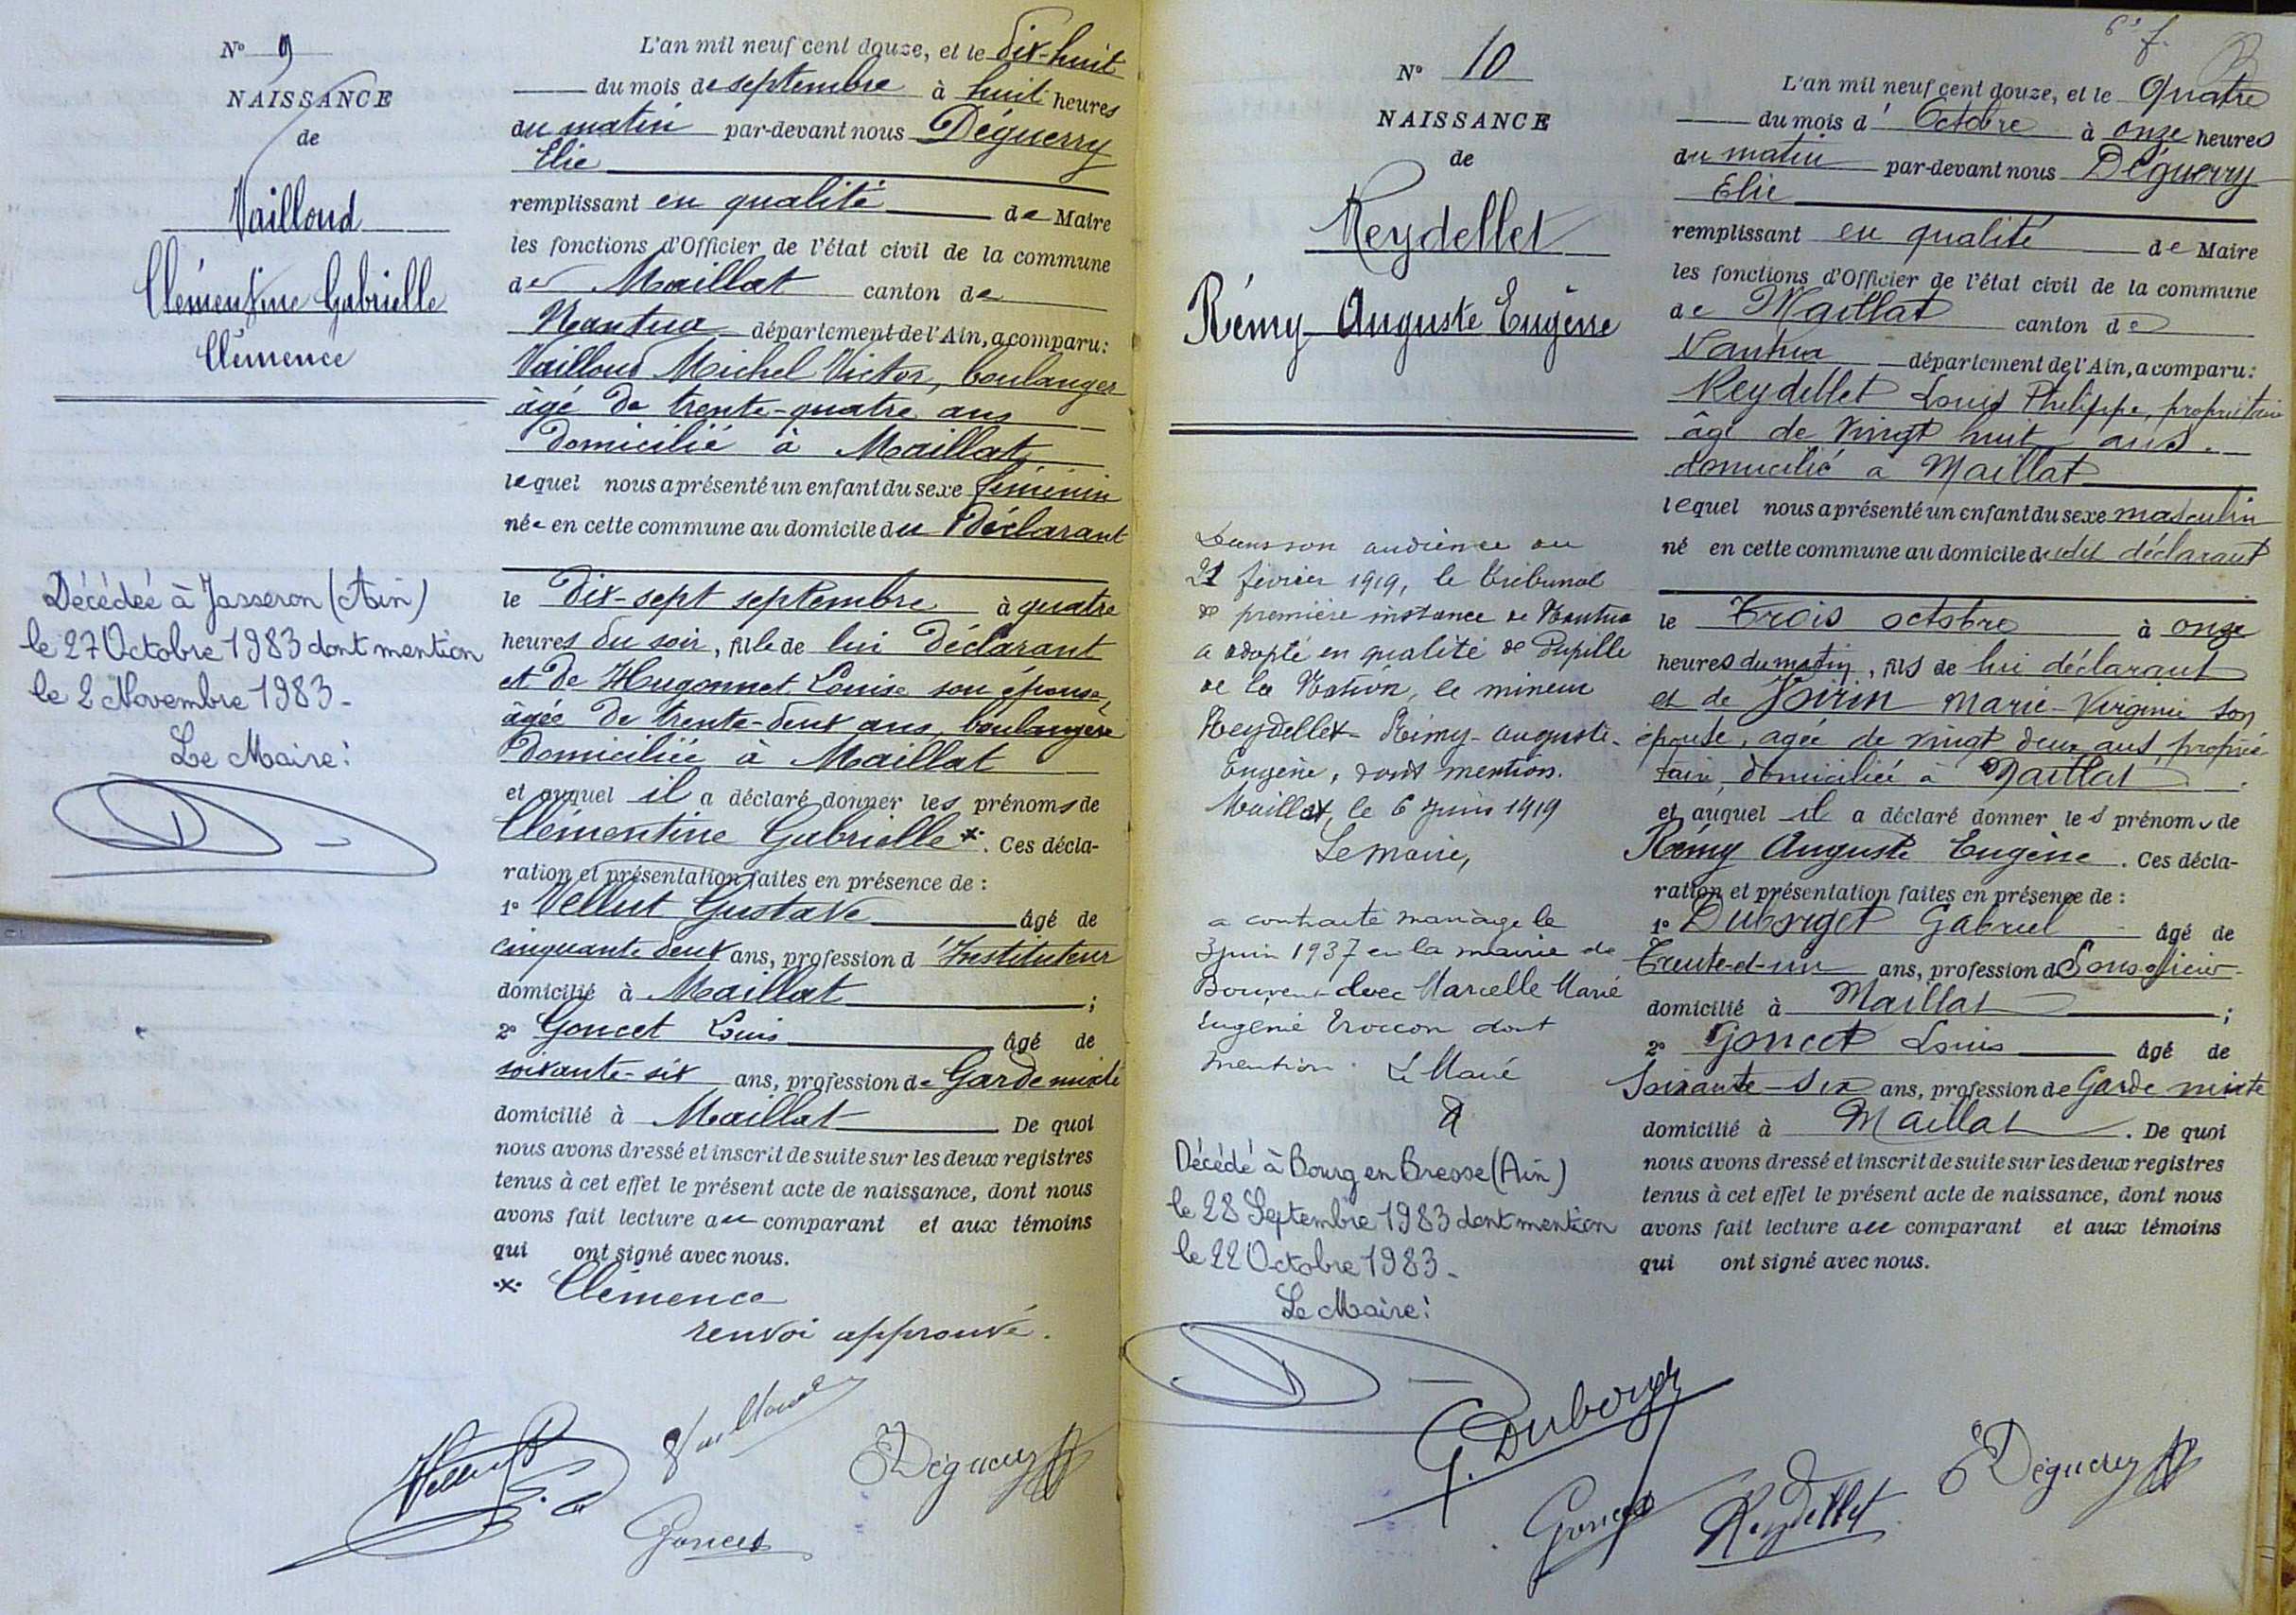 N° 9
NAISSANCE
de
Vailloud
Clémentine Gabrielle
Clémence
Décédée à Jasseron (Ain)
le 27 Octobre 1983 dont mention
le 2 Novembre 1983 -
Le Maire:
L'an mil neuf cent douze, et le dix-huit
du mois de septembre à huit heures
du matin par-devant nous Déguerry
Elie
remplissant en qualité de Maire
les fonctions d'Officier de l'état civil de la commune
de Maillat canton de
Nantua département de l'Ain, a comparu:
Vailloud Michel Victor, boulanger
âgé de trente-quatre ans
domicilié à Maillat
lequel nous a présenté un enfant du sexe féminin
née en cette commune au domicile du déclarant
le dix-sept septembre à quatre
heures du soir, fille de lui déclarant
et de Hugonnet Louise son épouse,
âgée de trente-deux ans, boulangère
domiciliée à Maillat
et auquel il a déclaré donner les prénoms de
Clémentine Gabrielle *. Ces décla-
ration et présentation faites en présence de :
1° Vellut Gustave âgé de
cinquante deux ans, profession d'Instituteur
domicilié à Maillat ;
2° Goncet Louis âgé de
soixante-six ans, profession de Garde mixte
domicilié à Maillat De quoi
nous avons dressé et inscrit de suite sur les deux registres
tenus à cet effet le présent acte de naissance, dont nous
avons fait lecture au comparant et aux témoins
qui ont signé avec nous.
* Clémence
renvoi approuvé.
Vellut
Vailloud
E Déguerry
Goncet
N° 10
NAISSANCE
de
Reydellet
Rémy Auguste Eugène
Dans son audience du
21 février 1919, le tribunal
de première instance de Nantua
a adopté en qualité de Pupille
de la Nation, le mineur
Reydellet - Rémy - Auguste -
Eugène, dont mention.
Maillat, le 6 juin 1919
Le maire,
a contracté mariage le
3 juin 1937 en la mairie de
Bouvent avec Marcelle Marie
Eugénie Troccon dont
mention. Le Maire
Décédé à Bourg en Bresse (Ain)
le 28 Septembre 1983 dont mention
le 22 Octobre 1983 -
Le Maire:
L'an mil neuf cent douze, et le Quatre
du mois d'Octobre à onze heures
du matin par-devant nous Déguerry
Elie
remplissant en qualité de Maire
les fonctions d'Officier de l'état civil de la commune
de Maillat canton de
Nantua département de l'Ain, a comparu:
Reydellet Louis Philippe, propriétaire
âgé de vingt huit ans.
domicilié a Maillat
lequel nous a présenté un enfant du sexe masculin
né en cette commune au domicile dudit déclarant
le Trois octobre à onze
heures du matin, fils de lui déclarant
et de Marie-Virginie son
épouse, agée de vingt deux ans, proprié
taire, domiciliée à Maillat
et auquel il a déclaré donner les prénoms de
Rémy Auguste Eugène. Ces décla-
ration et présentation faites en présence de :
1° Duborget Gabriel âgé de
Trente-et-un ans, profession de Sous-officier
domicilié à Maillat ;
2° Goncet Louis âgé de
Soixante-six ans, profession de Garde mixte
domicilié à Maillat. De quoi
nous avons dressé et inscrit de suite sur les deux registres
tenus à cet effet le présent acte de naissance, dont nous
avons fait lecture au comparant et aux témoins
qui ont signé avec nous.
G. Duborget
Goncet
Reydellet
E Déguerry